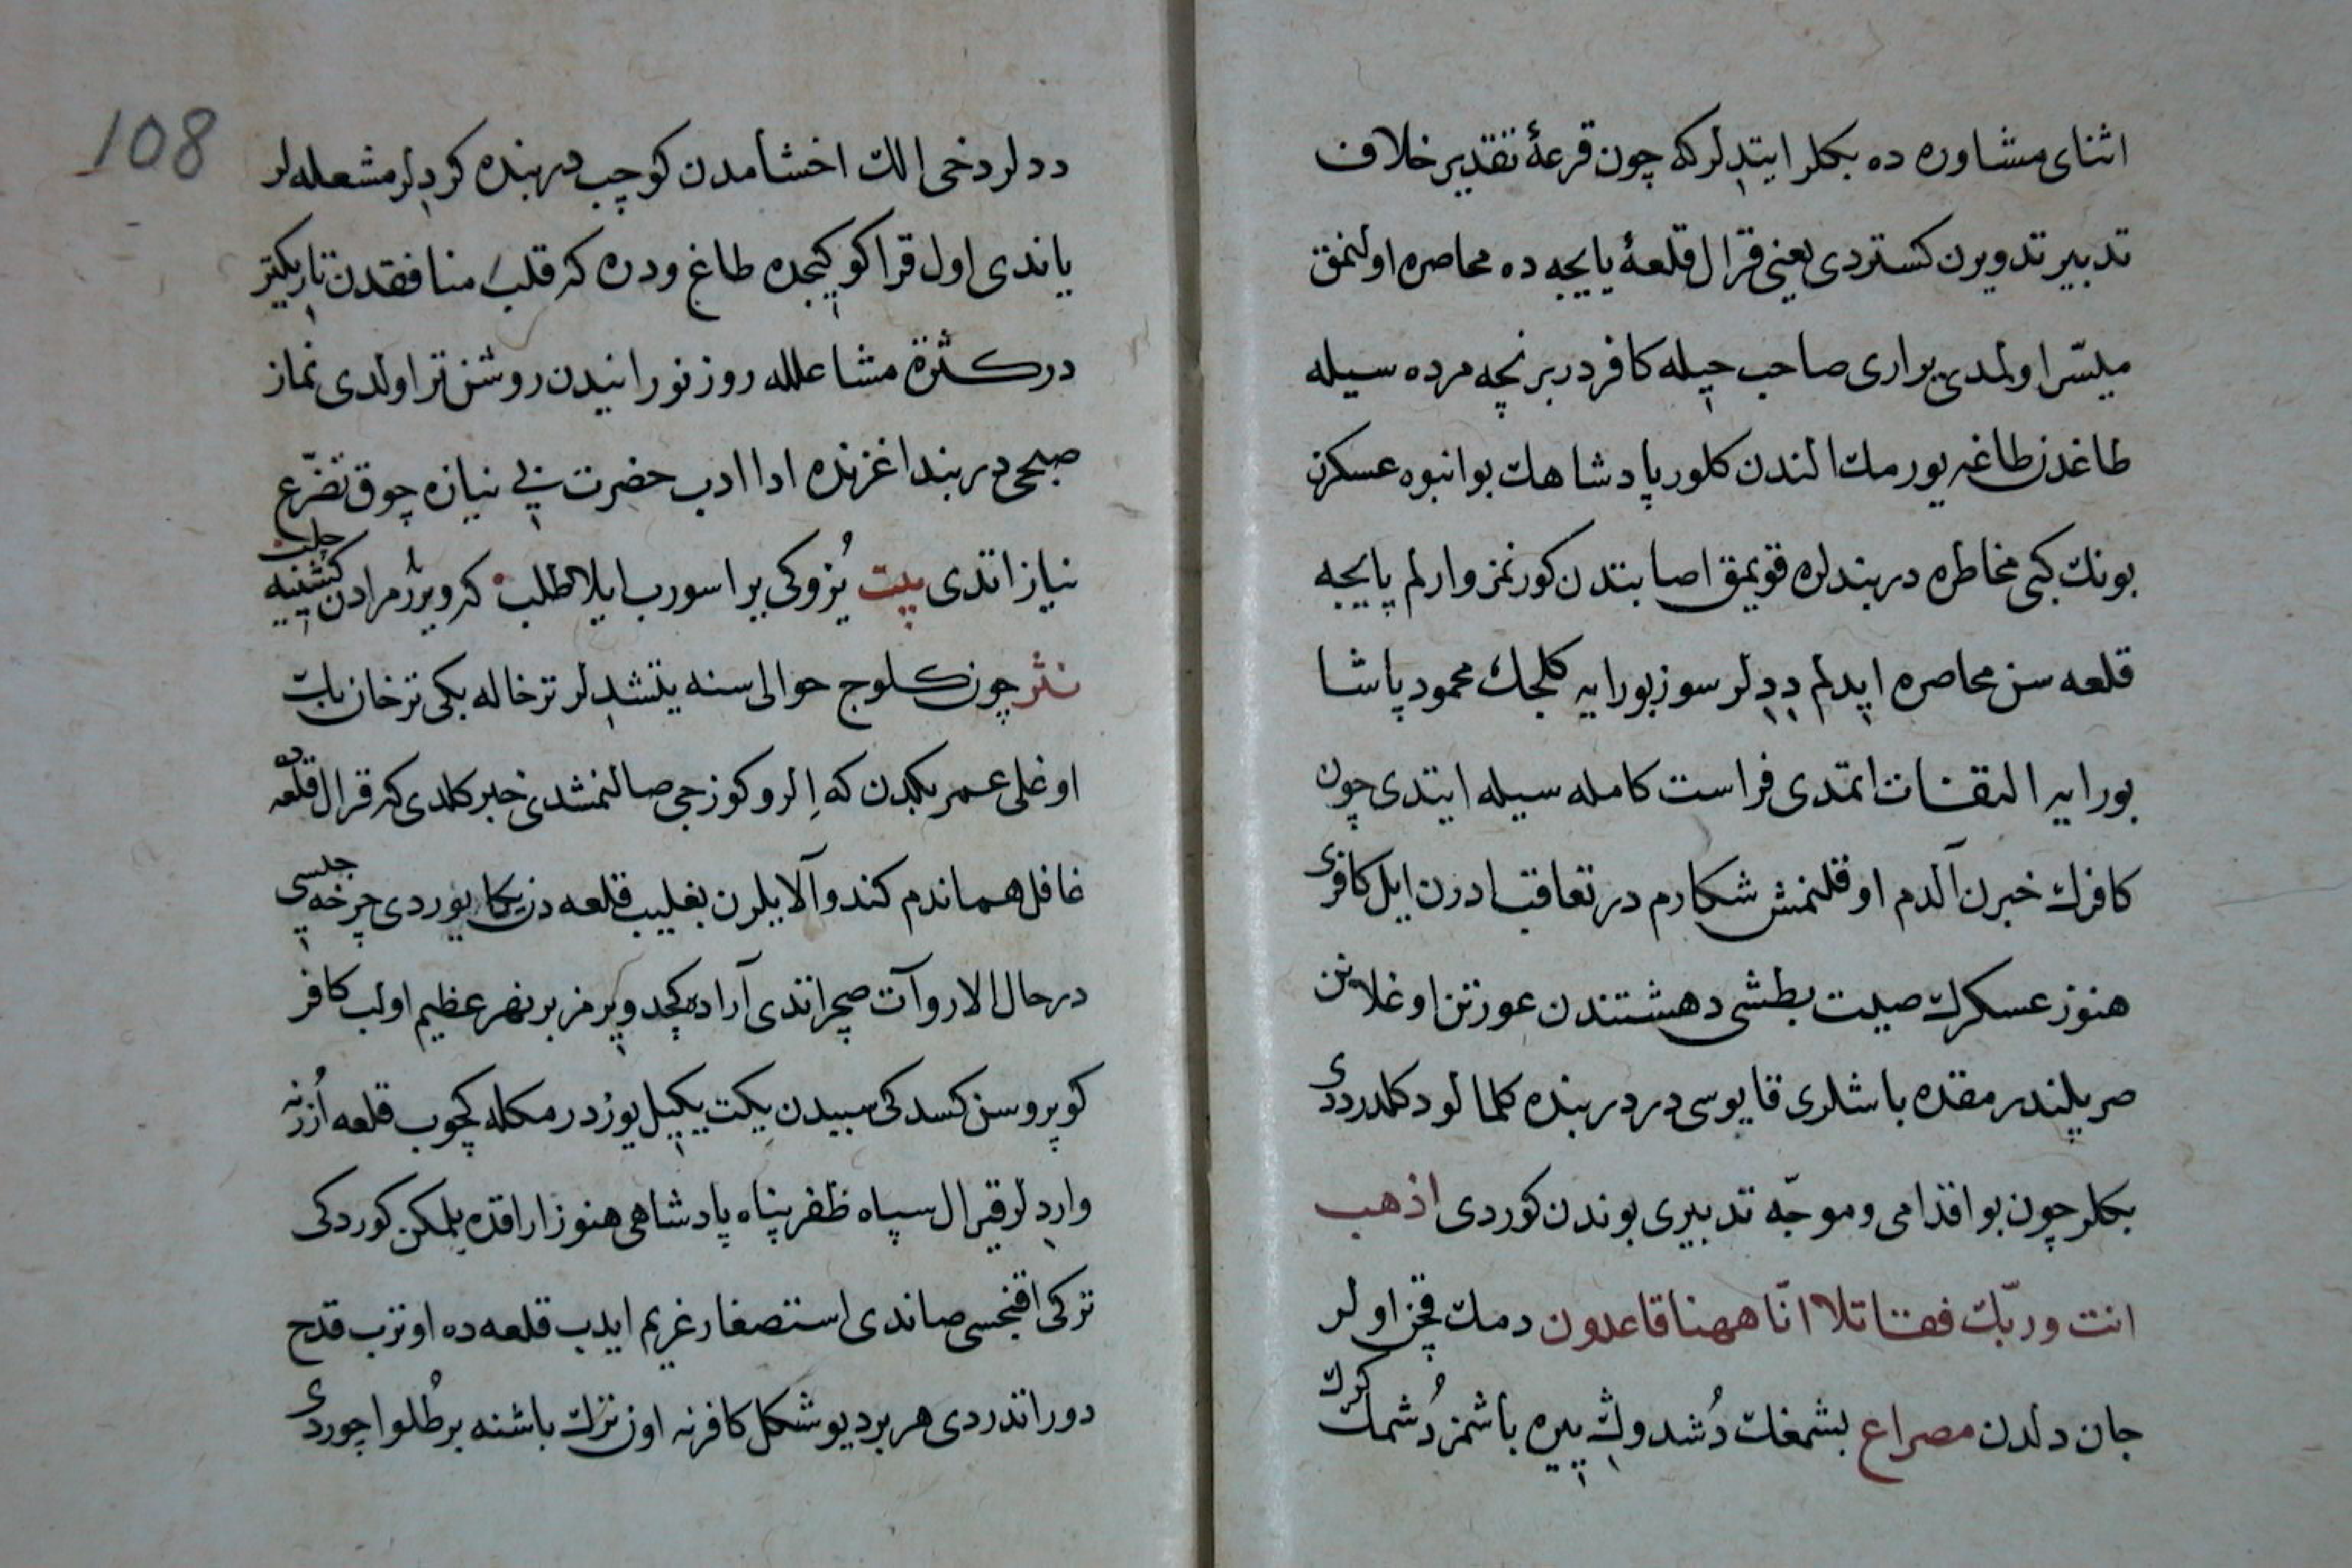 اثنای مشاوره ده بكلر ایتدلر كه چون قرعۀ تقدیر خلاف
تدبیر تدویرن كستردی یعنی قرال قلعۀ یایجه ده محاصره اولنمق
میسّر اولمدی یواری صاحب حیله كافردر برنچه مرده سیله
طاغدن طاغه یورمك الندن كلور پادشاهك بو انبوه عسكرن
بونك كبی مخاطره دربندلره قویمق اصابتدن كورنمز وارلم یایجه
قلعه سن محاصره ایدلم ددلر سوز بورایه كلجك محمود پاشا
بورایه التفات اتمدی فراست كامله سیله ایتدی چون
كافرك خبرن آلدم اوقلنمش شكارم در تعاقب ادرن ایل كافری
هنوز عسكرك صیت بطشی دهشتندن عورتن اوغلانن
صرپلندرمقده باشلری قایوسی در دربنده كلمالو د كلدردی
بكلر چون بو اقدامی و موجّه تدبیری بوندن كوردی اذهب
انت وربّك فقاتلا انّا ههنا قاعدون دمك قچن اولر
جان دلدن مصراع بشمغك دُشدوك ییره باشمز دُشمك كرك
108
ددلر دخی الك اخشامدن كوچب دربنده كردلر مشعله لر
یاندی اول قراكو كیجده طاغ و دره كه قلب منافقدن تاریكتر
در كثرة مشاعلله روز نورانیدن روشن تر اولدی نماز
صبحی دربند اغزنده ادا ادب حضرت بی نیازه چوق تضرّع
نیاز اتدی بیت یُزوكی یرا سورب ایلا طلب كه ویرر مرادن كشینیه چلب
نثر چون كلوج حوالی سنه یتشدلر ترخاله بكی ترخان بك
اوغلی عمر بكدن كه اِلرو كوزجی صالنمشدی خبر كلدی كه قرال قلعه ده
غافل هماندم كندو آلایلرن بغلیب قلعه دن یكا یوردی چرخه چلسی
درحال الارو آت صچراتدی آراده كچد ویرمز بر نهر عظیم اولب كافر
كوپروسن كسدكی سببدن یكت ییكیل یوزدرمكله كچوب قلعه اُزرنه
واردلر قیرال سپاه ظفر پناه پادشاهی هنوز اراقده بلمكن كوردكی
تركی اقنجسی صاندی استصغار غریم ایدب قلعه ده اوترب قدح
دور اتدردی هر بر دیو شكل كافرنه اون ترك باشنه بر طُلو اچوردی